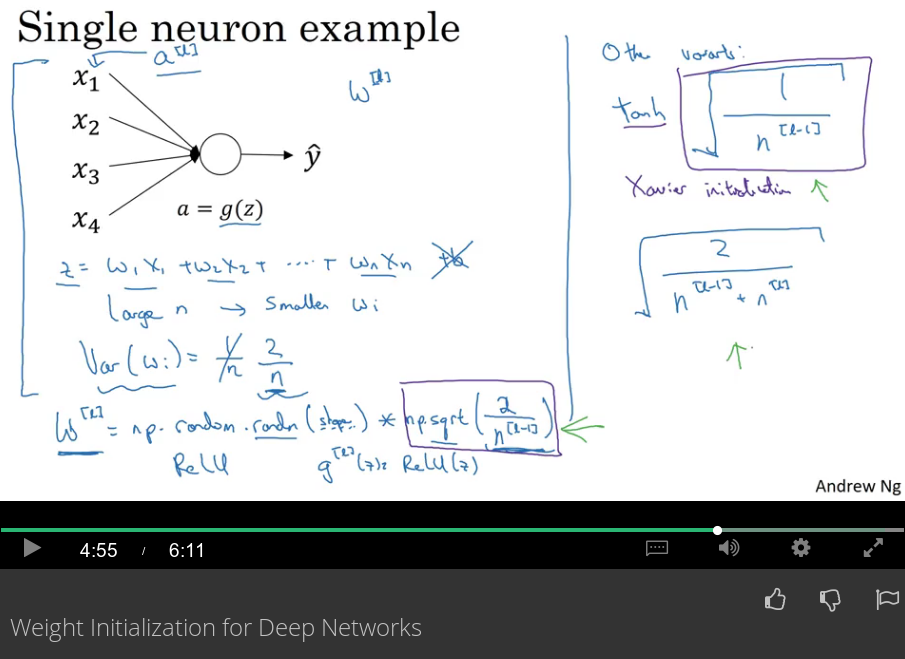 Single neuron example
a^[l]
x₁
x₂
x₃
x₄
w^[l]
ŷ
a = g(z)
z = w₁x₁ + w₂x₂ + .... + wₙxₙ +b
Large n → Smaller wᵢ
Var(wᵢ) = 1/n 2/n
W^[l] = np.random.randn(shape) * np.sqrt(2/n^[l-1])
ReLU g^[l](z) = ReLU(z)
Other variants:
tanh √(1/n^[l-1])
Xavier initialization ↑
√(2/(n^[l-1] + n^[l]))
↑
Andrew Ng
4:55 / 6:11
Weight Initialization for Deep Networks